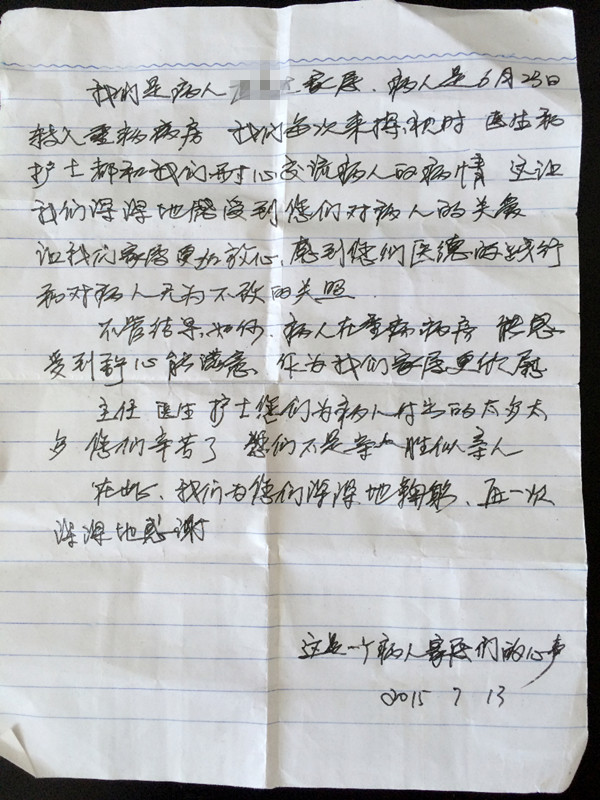 我们是病人 家属、病人是6月25日
转入重病病房 我们每次来探视时 医生和
护士都和我们耐心交流病人的病情 这让
我们深深地感受到您们对病人的关爱
让我们家属更加放心、感到您们医德的践行
和对病人无为不致的关照
不管结果如何、病人在重病病房 能感
受到舒心能满意 作为我们家属更欣慰
主任 医生 护士您们为病人付出的太多太
多 您们辛苦了 您们不是亲人胜似亲人
在此、我们为您们深深地鞠躬、再一次
深深地感谢
这是一个病人家属们的心声
2015 7 13